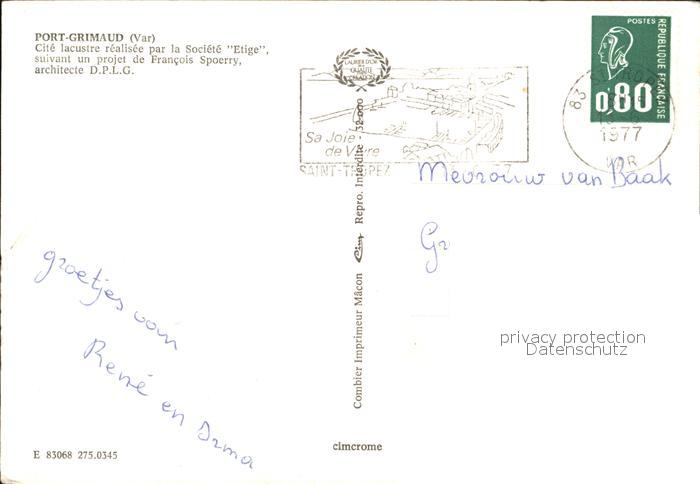 PORT-GRIMAUD (Var)
Cité lacustre réalisée par la Société "Etige",
suivant un projet de François Spoerry,
architecte D.P.L.G.
LAURIER D'OR
QUALITÉ
Sa Joie
de Vivre
SAINT-TROPEZ
POSTES
REPUBLIQUE FRANÇAISE
0,80
83
1977
VAR
Mevrouw van Baak
Gr
privacy protection
Datenschutz
groetjes van
René en Irma
Combier Imprimeur Mâcon Cim Repro. Interdite - 52-000
cimcrome
E 83068 275.0345